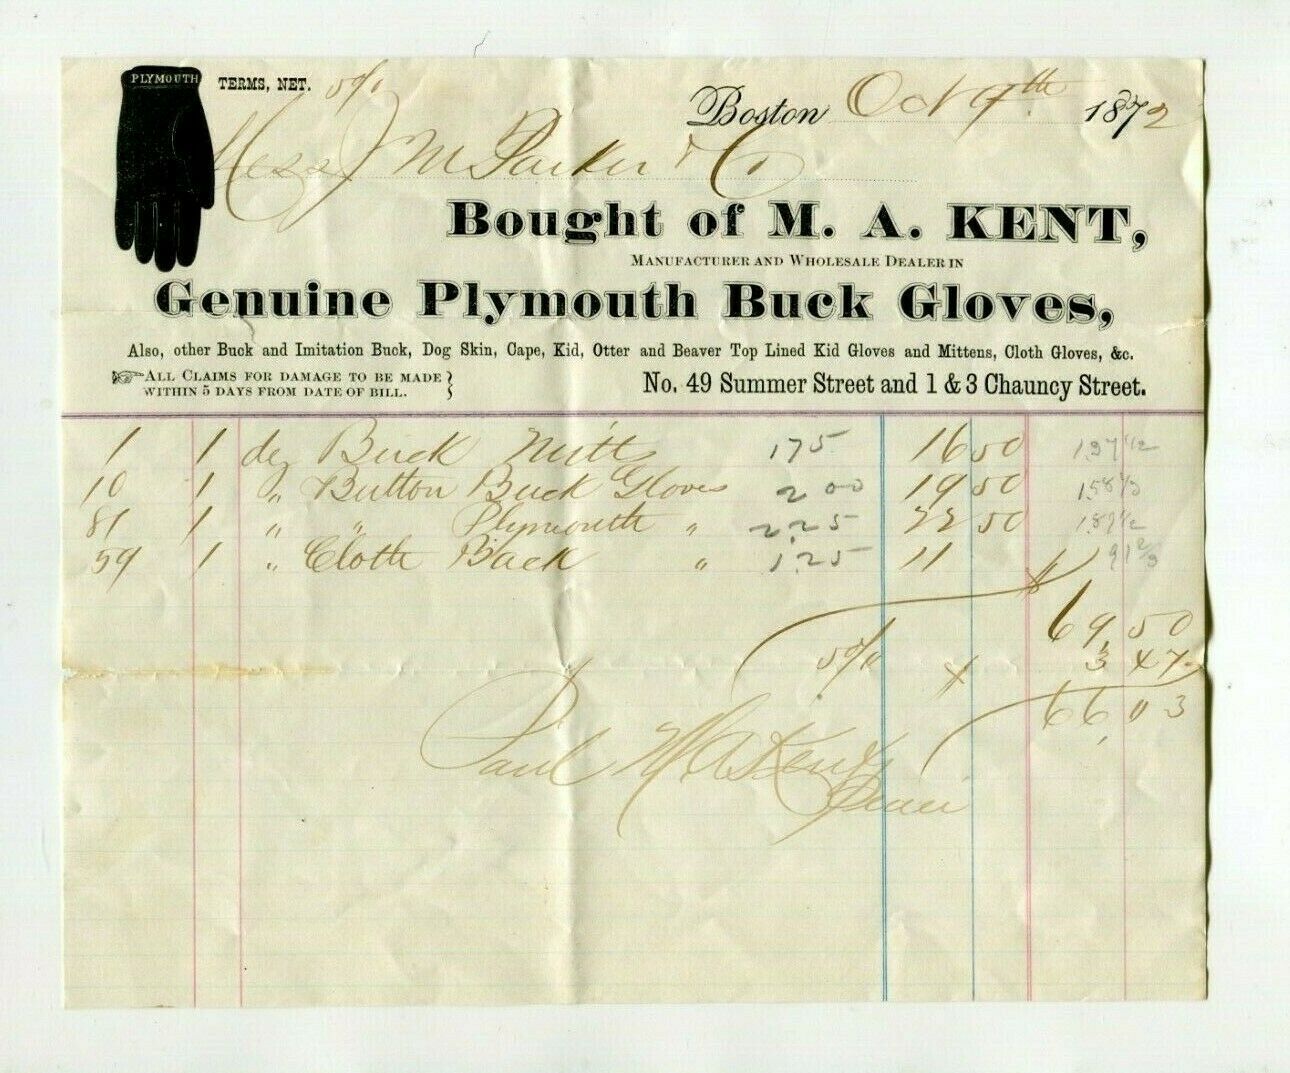 PLYMOUTH
TERMS, NET. 5%
Boston Oct 9th 1872
Mess J M Parker & Co
Bought of M. A. KENT,
MANUFACTURER AND WHOLESALE DEALER IN
Genuine Plymouth Buck Gloves,
Also, other Buck and Imitation Buck, Dog Skin, Cape, Kid, Otter and Beaver Top Lined Kid Gloves and Mittens, Cloth Gloves, &c.
ALL CLAIMS FOR DAMAGE TO BE MADE
WITHIN 5 DAYS FROM DATE OF BILL.
No. 49 Summer Street and 1 & 3 Chauncy Street.
1 1 dz Buck Mitts 175 16 50 1.37 1/2
10 1 " Button Buck Gloves 2 00 19 50 1.58 1/3
81 1 " " Plymouth " 2.25 22 50 1.87 1/2
59 1 " Cloth Back " 1.25 11 " 91 2/3
69.50
5% 3 47
66.03
Paid M A Kent